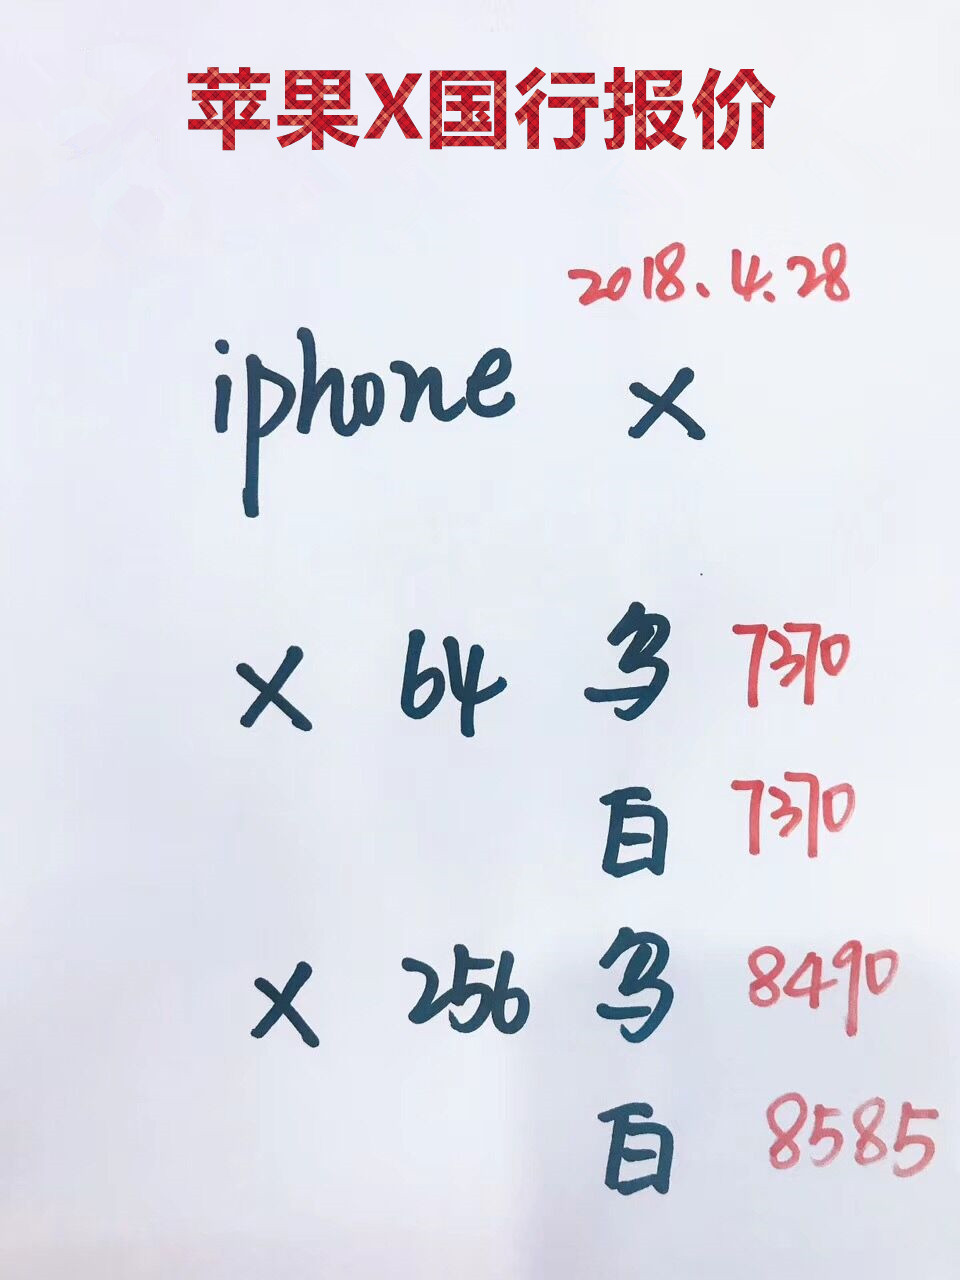 苹果X国行报价
2018.4.28
iphone X
X 64 乌 7370
白 7370
X 256 乌 8490
白 8585